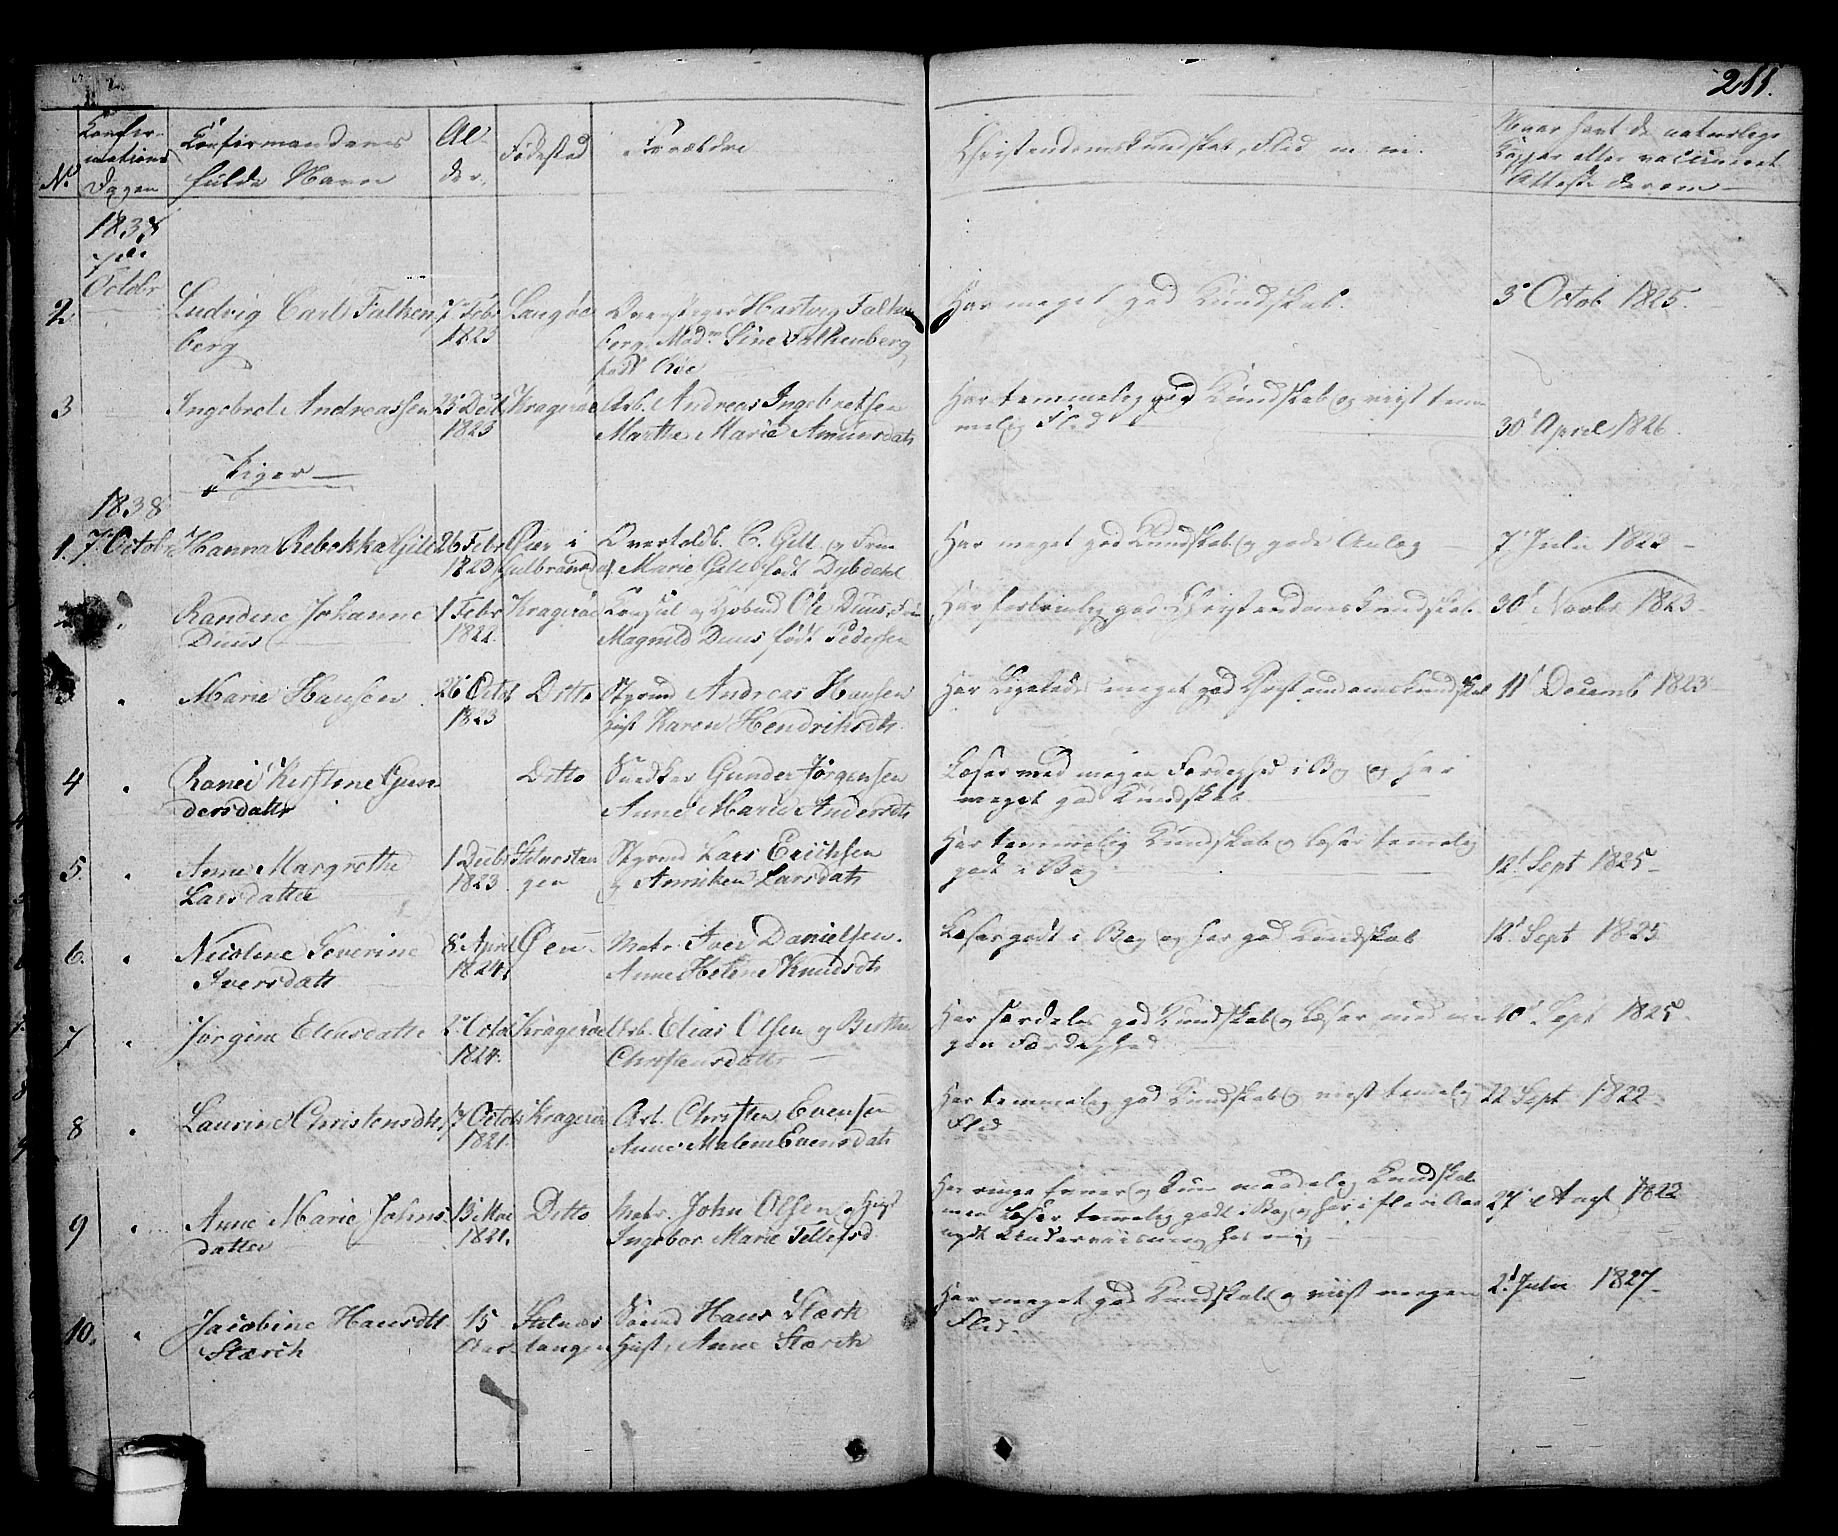 211.
No. Confirmations Dagen
Confirmandernes fulde Navn
Alder.
Fødested
Forældre
Christendomskundskab, Flid m. m.
Naar havt de naturlige Kopper eller vaccineret Attester derom
1838
7de
Octobr
2 Ludvig Carl Falkenberg 7 Febr 1823 Langøe Hartvig Falkenberg Madm Sine Falkenberg født Har meget god Kundskab. 3 Octob 1825.
3 Ingebret Andreassen 25 Dec 1823 Kragerøe Arb. Andreas Ingebretsen Marthe Marie Amunsdatr Har temmelig god Kundskab og viist temmelig Flid 30' April 1826.
Piger
1838
1. 7 Octobr Hanna Rebekka Gill 26 Febr 1823 Øier i Gulbransdal Overtoldb. C. Gill og Frue Marie Gill født Dybdahl Har meget god Kundskab og gode Anlæg 7 Julii 1823
" Randine Johanne Duus 1 Febr 1822. Kragerøe Consul og Kjøbmd Ole Duus, Frue Magnild Duus født Pedersen Har fortrinlig god Christendoms Kundskab. 30' Novbr 1823
3 " Marie Hansen 26 Octob 1823 Ditto Andreas Hansen Hust Karen Hendriksdtr. Har ligeledes meget god Christendomskundskab 11' Decemb 1823
4 " Kirstine Gundersdattr Ditto Snedker Gunder Jørgensen Anne Maria Andersdtr Læser med megen Færdighed i Bog og har meget god Kundskab
5. " Anne Margrethe Larsdatter 1 Decbr 1823 gen Lars Erichsen og Anniken Larsdatr Har temmelig Kundskab og læser temmelig godt i Bog 12' Sept 1825
6. " Nicoline Severine Iversdatr 8' April 1824 Øen Matr. Iver Danielsen. Anne Helene Knudsdtr Læser godt i Bog og har god Kundskab 12' Sept 1825
7 " Jørgine Eliasdatter 2 Octob 1824. Kragerøe Arb. Elias Olsen og Berthe Christensdattr Har særdeles god Kundskab og læser med megen Færdighed 20' Sept 1825
8 " Laurine Christensdtr 7 Octob 1821. Kragerøe Arb. Christen Evensen Anne Malene Evensdatr Har temmelig god Kundskab og viist temmelig Flid 22 Sept 1822
9 " Anne Marie Johnsdatter 13 Mai 1821. Ditto Matr. John Olsen og Hust Ingebor Marie Tellefsd Har ringe Evner og kun maadelig Kundskab men læser temmelig godt i Bog og har i flere Aar nydt Underviisning hos mig 27' Aug 1822
10. " Jacobine Hansdtr Stærck 15 Aar Stilnæstangen Sømd Hans Stærk Hust. Anne Stærck Har meget god Kundskab og viist megen Flid. 2' Julii 1827